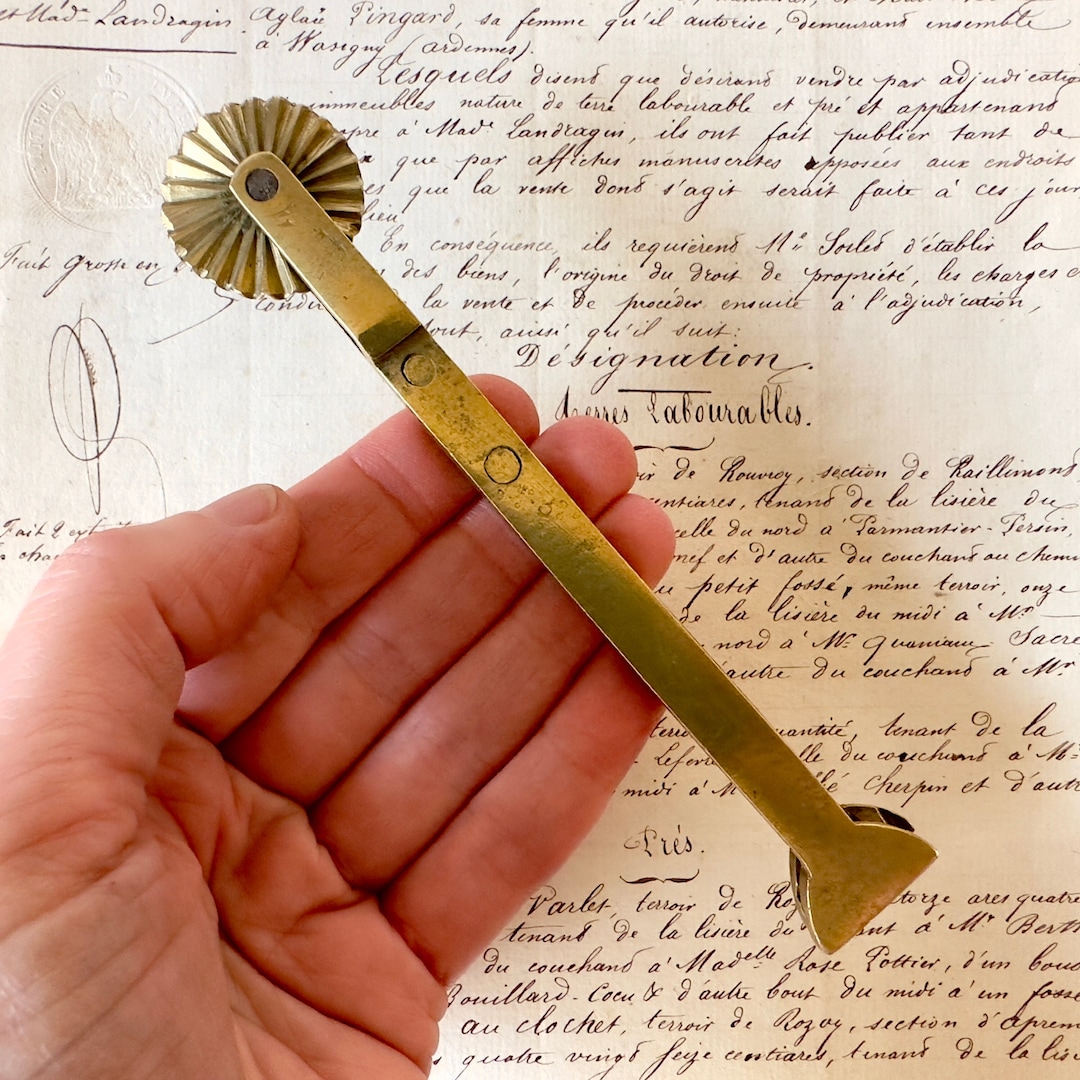 Mad.e Landragin Aglaë Pingard, sa femme qu'il autorise, demeurant ensemble
à Wasigny (ardennes).
Lesquels disent que désirant vendre par adjudication
immeubles nature de terre labourable et pré et appartenant
propre à Mad.e Landragin, ils ont fait publier tant de
que par affiches manuscrites apposées aux endroits
es que la vente dont s'agit serait faite à ces jour
lieu
En conséquence, ils requièrent M.e d'établir la
Fait Grosse en
des biens, l'origine du droit de propriété, les charges e
condi la vente et de procéder ensuite à l'adjudication,
tout, ainsi qu'il suit:
Désignation.
Terres Labourables.
ir de Rouvroy, section de Raillimont
ntiares, tenant de la lisière du
Fait 2 ext
celle du nord à Parmantier-Persin,
nef et d'autre du couchant au chemi
u petit fossé, même terroir, onze
de la lisière du midi à M.r
nord à M.r Sacre
autre du couchant à M.r
terr quantité, tenant de la
Lefev lle du couchant à M.
midi à M lé Cherpin et d'autr
Prés.
Varlet, terroir de Roz torze ares quatre
tenant de la lisière du nt à M.r Berth
du couchant à Mad.elle Rose Pottier, d'un bout
Bouillard-Cocu & d'autre bout du midi à un fossé
au clochet, terroir de Rozoy, section d'aprem
quatre vingt seize centiares, tenant de la lis